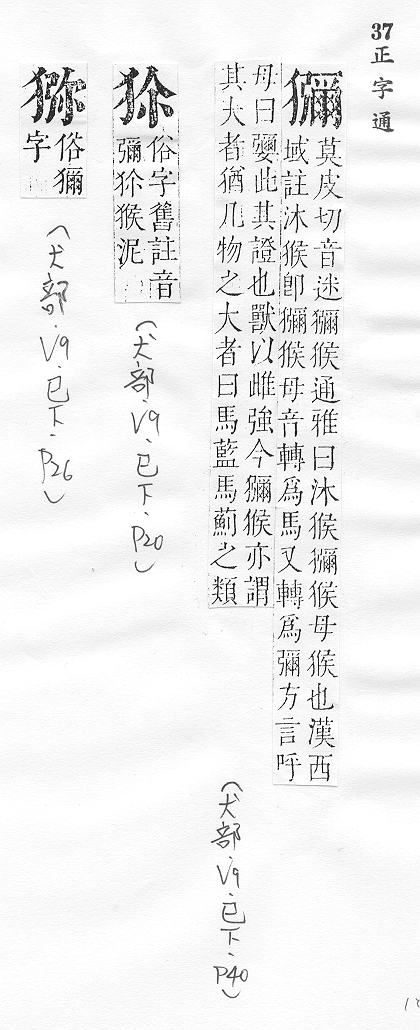 37正字通
獼
莫皮切音迷獼猴通雅曰沐猴獼猴母猴也漢西
域註沐猴卽獼猴母音轉爲馬又轉爲彌方言呼
母曰㜷此其證也獸以雌強今獼猴亦謂
其大者猶凡物之大者曰馬藍馬薊之類
（犬部．V9．巳下．P40）
㹝
俗字舊註音
彌㹝猴泥
（犬部．V9．巳下．P20）
猕
俗獼
字
（犬部．V9．巳下．P26）